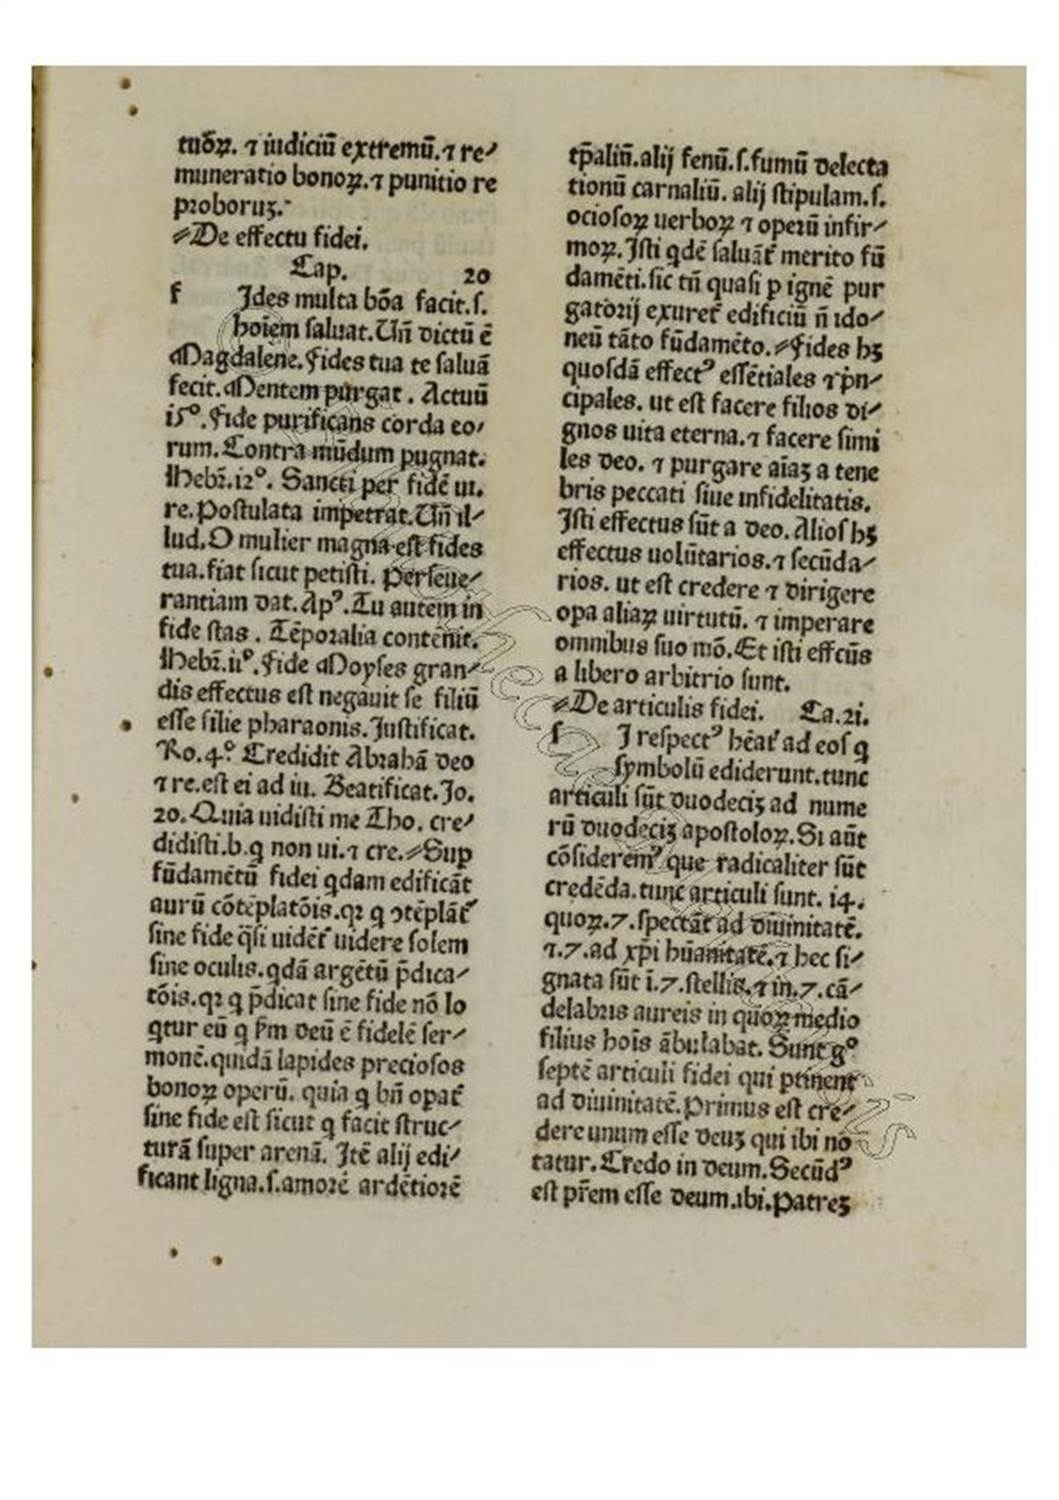 tuōꝝ. ⁊ iudiciū extremū.⁊ re⸗
muneratio bonoꝝ.⁊ punitio re
proboruꝫ.
De effectu fidei.
Cap. 20
f Ides multa bōa facit.ſ.
hoīem ſaluat.Un̄ dictū ē
Magdalene.Fides tua te ſaluā
fecit.Mentem purgat. Actuū
15°.Fide purificans corda eo⸗
rum.Contra mūdum pugnat.
Hebꝛ̄.12°. Sancti per fidē ui.
re.Poſtulata impetrat.Un̄ il⸗
lud.O mulier magna eſt fides
tua.fiat ſicut petiſti. Perſeue⸗
rantiam dat.Apꝰ.Tu autem in
fide ſtas. Tēporalia contēnit.
Hebꝛ̄.ii°.Fide Moyſes gran⸗
dis effectus eſt negauit ſe filiū
eſſe filie pharaonis.Juſtificat.
Ro.4.° Credidit Abrahā deo
⁊ re.eſt ei ad iu. Beatificat.Jo.
20.Quia uidiſti me Tho. cre⸗
didiſti.b.q non ui.⁊ cre. Sup
fūdamētū fidei qdam edificāt
aurū cōtēplatōis.qꝛ q ↄtēplāt᷑
ſine fide q̄ſi uidēt᷑ uidere ſolem
ſine oculis.qdā argētū p̄dica⸗
tōis.qꝛ q p̄dicat ſine fide nō lo
qtur eū q ſ̄m deū ē fidelē ſer⸗
monē.quidā lapides precioſos
bonoꝝ operū. quia q bn̄ opat᷑
ſine fide eſt ſicut q facit ſtruc⸗
turā ſuper arenā. Itē alij edi⸗
ficant ligna.ſ.amorē ardētiorē
tp̄aliū.alij fenū.ſ.fumū delecta
tionū carnaliū. alij ſtipulam.ſ.
ocioſoꝝ uerboꝝ ⁊ operū infir⸗
moꝝ.Iſti qdē ſaluāt᷑ merito fū
damēti.ſic tn̄ quaſi p ignē pur
gatorij exuret᷑ edificiū n̄ ido⸗
neū tāto fūdamēto. Fides hꝫ
quoſdā effectꝰ eſſētiales ⁊ p̄n⸗
cipales. ut eſt facere filios di⸗
gnos uita eterna.⁊ facere ſimi
les deo. ⁊ purgare aīaꝫ a tene
bris peccati ſiue infidelitatis.
Iſti effectus ſūt a deo. Alioſ hꝫ
effectus uolūtarios.⁊ ſecūda⸗
rios. ut eſt credere ⁊ dirigere
opa aliaꝝ uirtutū. ⁊ imperare
omnibus ſuo mō.Et iſti effcūs
a libero arbitrio ſunt.
De articulis fidei. Ca.2i.
ſ I reſpectꝰ hēat᷑ ad eoſ q
ſymbolū ediderunt.tunc
articuli ſūt duodeciꝫ ad nume
rū duodeciꝫ apoſtoloꝝ.Si aūt
cōſideremꝰ que radicaliter ſūt
credēda.tunc articuli ſunt. i4.
quoꝝ.7.ſpectāt ad diuinitatē.
⁊.7.ad xp̄i hūanitatē.⁊ hec ſi⸗
gnata ſūt ī.7.ſtellis.⁊ in.7.cā⸗
delabris aureis in quoꝝ medio
filius hoīs ābulabat. Sunt g°
ſeptē articuli fidei qui ptinent
ad diuinitatē.Primus eſt cre⸗
dere unum eſſe deuꝫ qui ibi no
tatur.Credo in deum.Secūdꝰ
eſt pr̄em eſſe deum.ibi.Patreꝫ